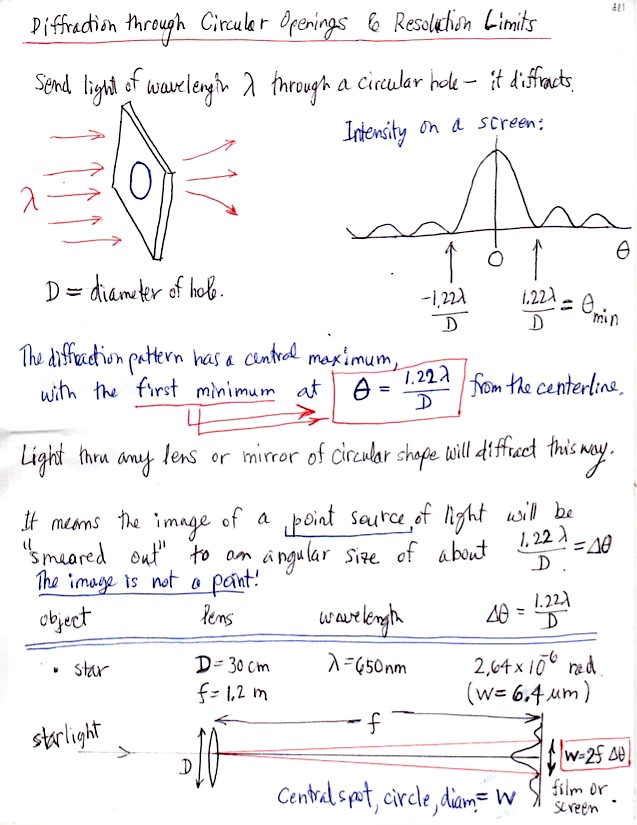 221
Diffraction through Circular Openings & Resolution Limits
Send light of wavelength λ through a circular hole – it diffracts.
Intensity on a screen:
λ
0
θ
D = diameter of hole.
-1.22λ/D
1.22λ/D = θmin
The diffraction pattern has a central maximum,
with the first minimum at θ = 1.22λ/D from the centerline.
Light thru any lens or mirror of circular shape will diffract this way.
It means the image of a point source of light will be
"smeared out" to an angular size of about 1.22λ/D = Δθ.
The image is not a point!
object lens wavelength Δθ = 1.22λ/D
• star D = 30 cm λ = 650 nm 2.64 x 10⁻⁶ rad.
f = 1.2 m (w = 6.4 μm)
f
starlight
D
w = 2f Δθ
Central spot, circle, diam. = w
film or
screen.